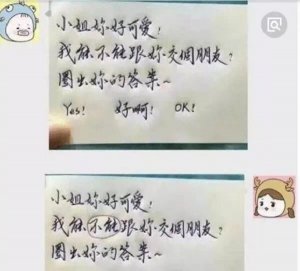 小姐妳好可愛!
我能不能跟妳交個朋友?
圈出妳的答案~
Yes! 好啊! OK!
小姐妳好可愛!
我能不能跟妳交個朋友?
圈出妳的答案~